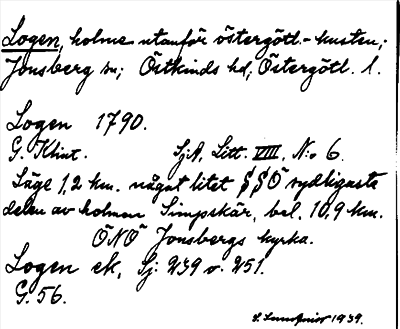 Logen, holme utanför östergötl.-kusten;
Jonsberg sn; Östkinds hd; Östergötl. l.
Logen 1790.
G. Klint. SjA, Litt. VIII, N:o 6.
Läge 1,2 km. något litet § § Ö sydligaste
delen av holmen Simpskär, bel. 10,9 km.
ÖNÖ Jonsbergs kyrka.
Logen ek, Sj: 239 o. 251.
G. 56.
1939.